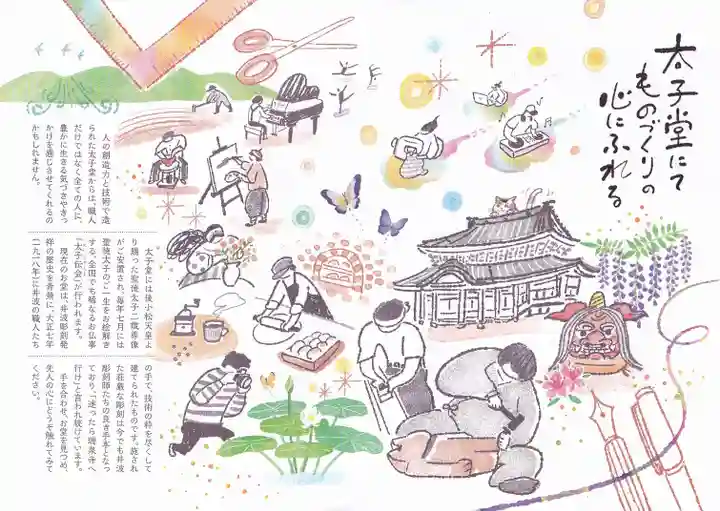 太子堂にて
ものづくりの
心にふれる
人の創造力と技術で造
られた太子堂からは、職人
だけではなく全ての人に、
豊かに生きる気づきやきっ
かけを感じさせてくれるの
かもしれません。
太子堂には後小松天皇よ
り賜った聖徳太子二歳尊像
がご安置され、毎年七月には
聖徳太子のご一生をお絵解き
する、全国でも稀なるお仏事
「太子伝会」が行われます。
現在のお堂は、井波彫刻発
祥の歴史を背景に、大正七年
(一九一八年)に井波の職人たち
の手で、技術の粋を尽くして
建てられたものです。施され
た荘厳な彫刻は今でも井波
彫刻師たちの良き手本となっ
ており、「迷ったら瑞泉寺へ
行け」と言われ続けています。
手を合わせ、お堂を見つめ、
先人の心にどうぞ触れてみて
ください。